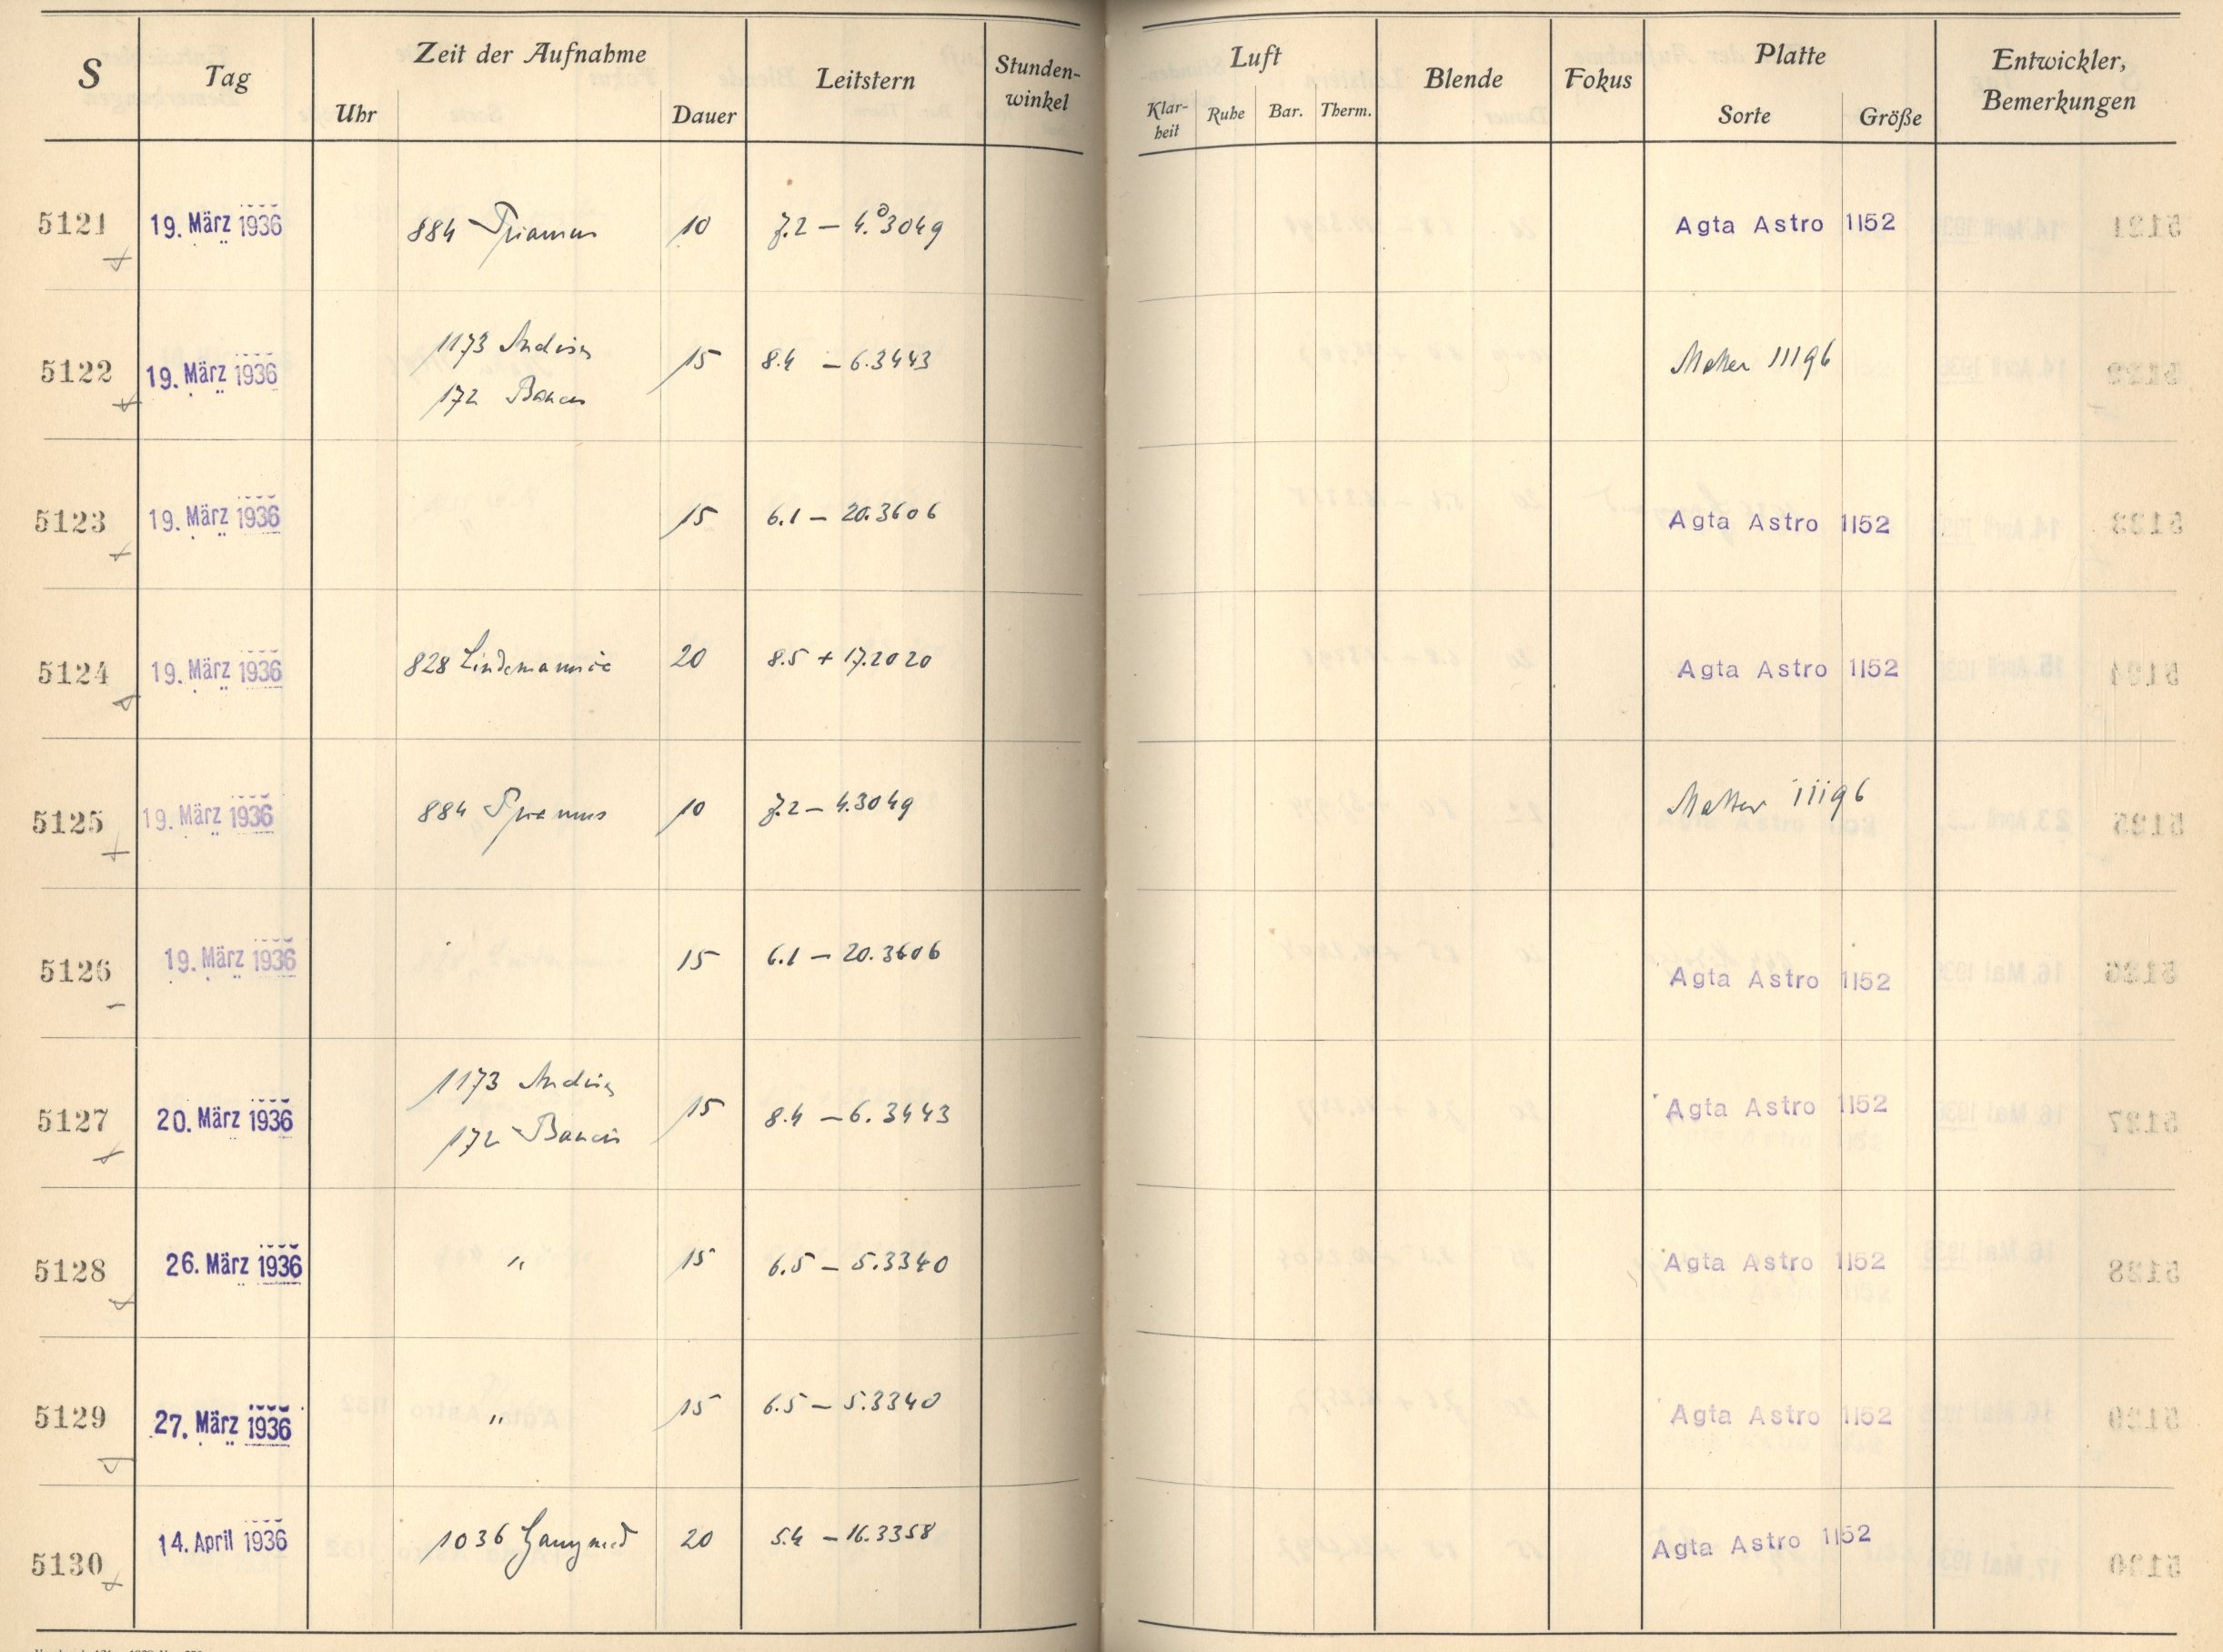 S Tag Zeit der Aufnahme Leitstern Stunden-winkel Luft Blende Fokus Platte Entwickler, Bemerkungen
Uhr Dauer Klar-heit Ruhe Bar. Therm. Sorte Größe
5121 19. März 1936 884 Priamus 10 7.2 – 4.°3049 Agta Astro 1152
5122 19. März 1936 1173 Anchises 15 8.4 – 6.3443 11196
172 Baucis
5123 19. März 1936 15 6.1 – 20.3606 Agta Astro 1152
5124 19. März 1936 828 Lindemannia 20 8.5 + 17.2020 Agta Astro 1152
5125 19. März 1936 884 Priamus 10 7.2 – 4.3049 11196
5126 19. März 1936 15 6.1 – 20.3606 Agta Astro 1152
5127 20. März 1936 1173 Anchises 15 8.4 – 6.3443 Agta Astro 1152
172 Baucis
5128 26. März 1936 " 15 6.5 – 5.3340 Agta Astro 1152
5129 27. März 1936 " 15 6.5 – 5.3340 Agta Astro 1152
5130 14. April 1936 1036 Ganymed 20 5.4 – 16.3358 Agta Astro 1152